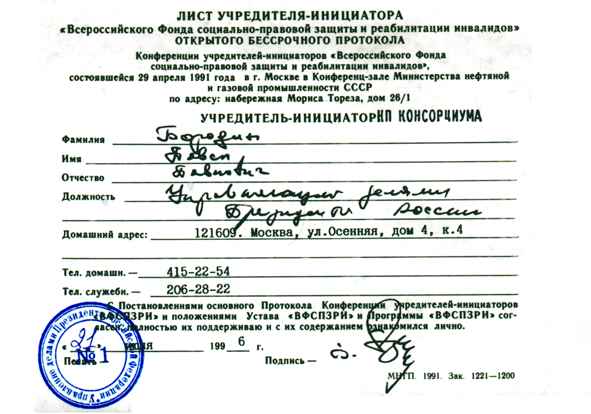 ЛИСТ УЧРЕДИТЕЛЯ-ИНИЦИАТОРА
«Всероссийского Фонда социально-правовой защиты и реабилитации инвалидов»
ОТКРЫТОГО БЕССРОЧНОГО ПРОТОКОЛА
Конференции учредителей-инициаторов «Всероссийского Фонда
социально-правовой защиты и реабилитации инвалидов»,
состоявшейся 29 апреля 1991 года в г. Москве в Конференц-зале Министерства нефтяной
и газовой промышленности СССР
по адресу: набережная Мориса Тореза, дом 26/1
УЧРЕДИТЕЛЬ-ИНИЦИАТОР КП КОНСОРЦИУМА
Фамилия Бородин
Имя Павел
Отчество Павлович
Должность Управляющий делами
Президента России
Домашний адрес: 121609. Москва, ул.Осенняя, дом 4, к.4
Тел. домашн. — 415-22-54
Тел. служебн. — 206-28-22
С Постановлениями основного Протокола Конференции учредителей-инициаторов
«ВФСПЗРИ» и положениями Устава «ВФСПЗРИ» и Программы «ВФСПЗРИ» сог-
ласен, полностью их поддерживаю и с их содержанием ознакомился лично.
« 21 » июля 1996 г.
Печать Подпись —
№1
Управление делами Президента Российской Федерации
МНТП. 1991. Зак. 1221—1200